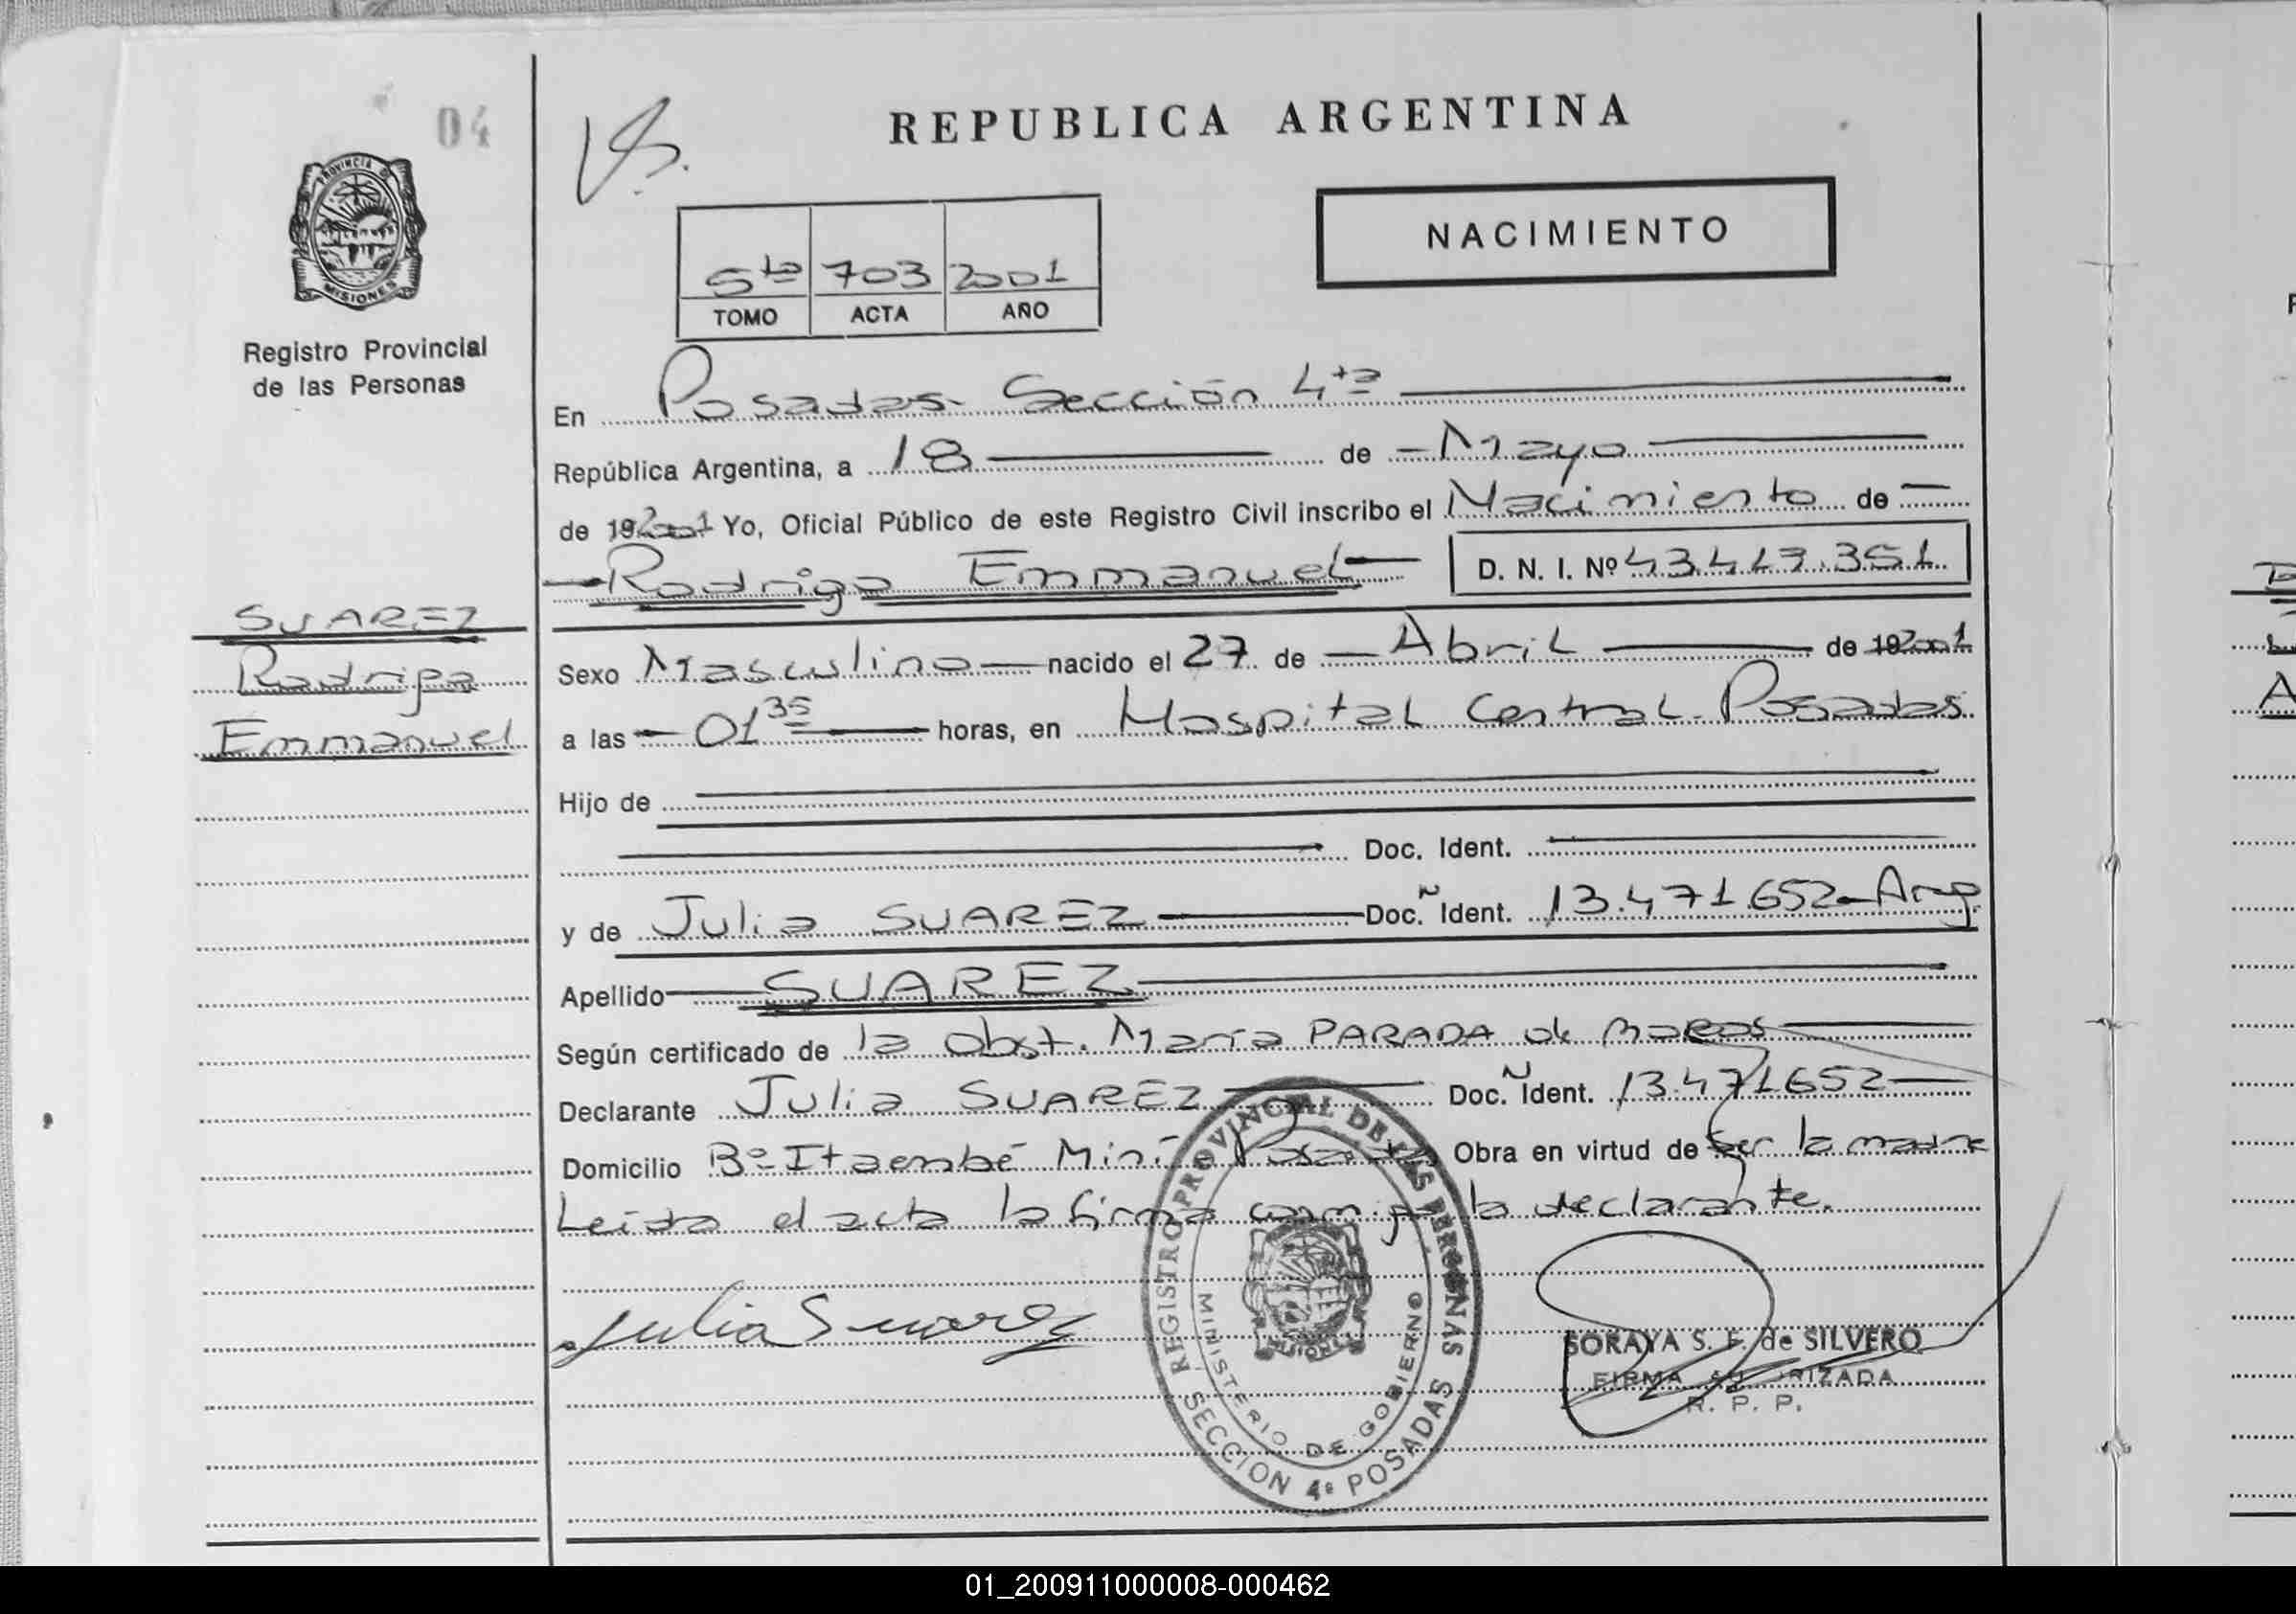 04
PROVINCIA D
MISIONES
Registro Provincial
de las Personas
SUAREZ
Rodrigo
Emmanuel
REPUBLICA ARGENTINA
NACIMIENTO
5to 703 2001
TOMO ACTA AÑO
En Posadas- Sección 4ta
República Argentina, a 18 de Mayo
de 192001 Yo, Oficial Público de este Registro Civil inscribo el Nacimiento de
Rodrigo Emmanuel D. N. I. Nº 43.417.351
Sexo Masculino nacido el 27 de Abril de 192001
a las 01 35 horas, en Hospital Central- Posadas
Hijo de
Doc. Ident.
y de Julia SUAREZ Doc. Ident. 13.471.652-Arg
Apellido SUAREZ
Según certificado de la Obst. María PARADA de
Declarante Julia SUAREZ Doc. Ident. 13.471652
Domicilio Bº Itaembé Miní Posadas Obra en virtud de ser la madre
Leida el acta la firma conmigo la declarante.
Julia Suarez
REGISTRO PROVINCIAL DE LAS PERSONAS
MINISTERIO DE GOBIERNO
SECCION 4ª POSADAS
SORAYA S. F. de SILVERO
FIRMA AUTORIZADA
R. P. P.
01_200911000008-000462